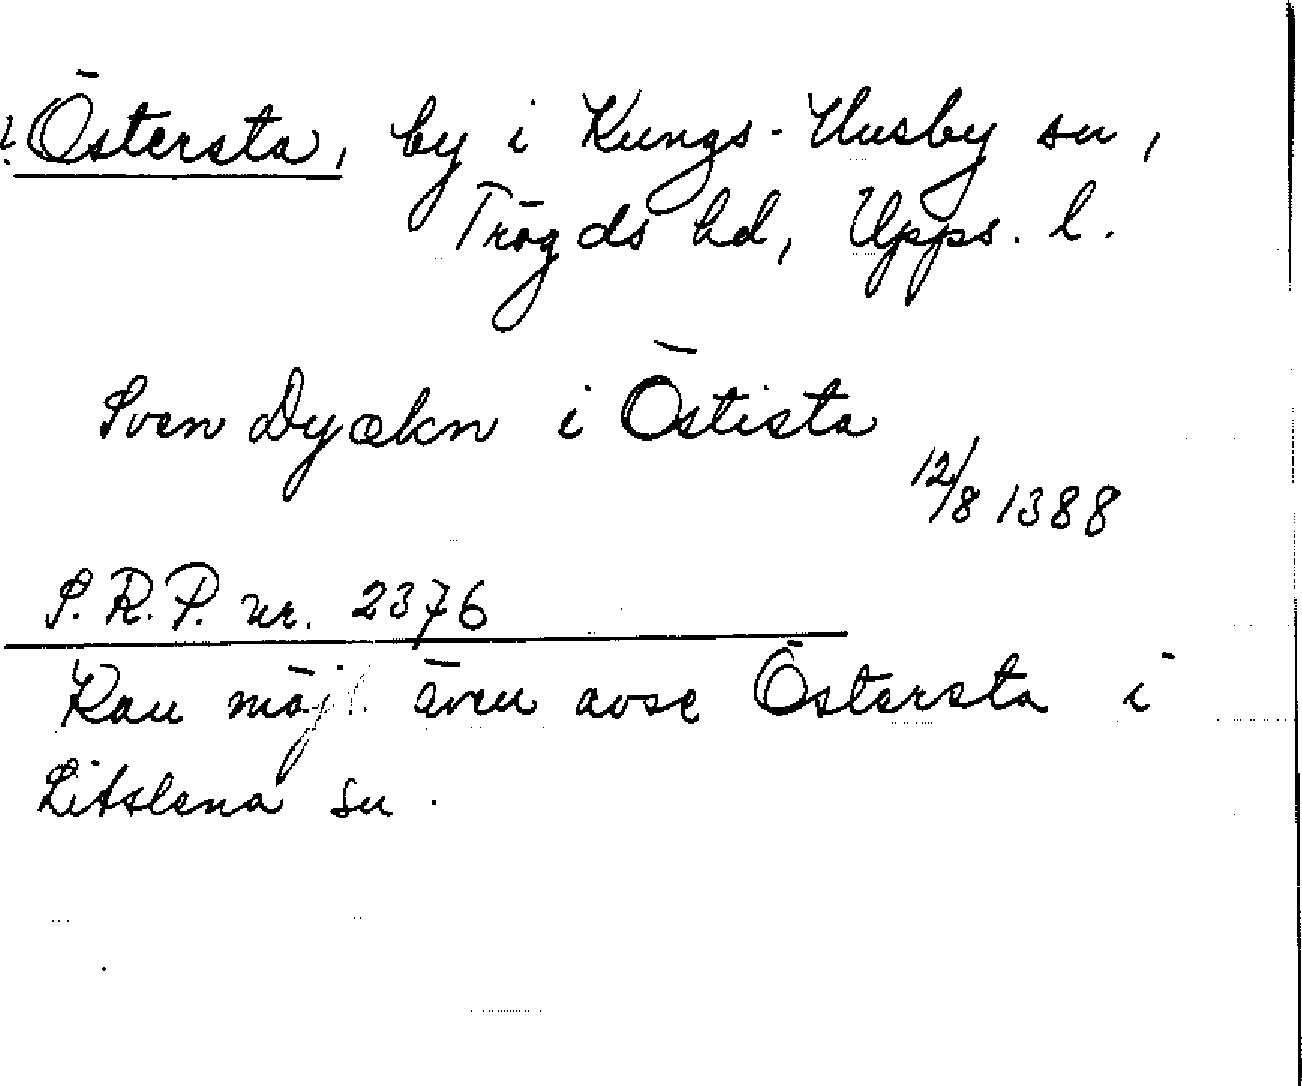 ? Östersta, by i Kungs-Husby sn,
Trögds hd, Upps. l.
Sven Dyækn i Östista
12/8 1388
S.R.P. nr. 2376
Kan möjl även avse Östersta i
Litslena sn.